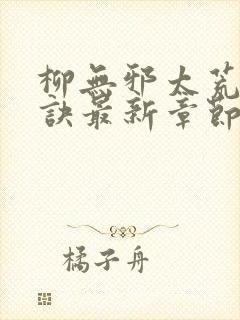 柳無邪太荒
訣最新章節
橘子舟